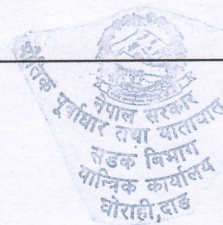 नेपाल सरकार
भौतिक पूर्वाधार तथा यातायात
सडक विभाग
यान्त्रिक कार्यालय
घोराही, दाङ